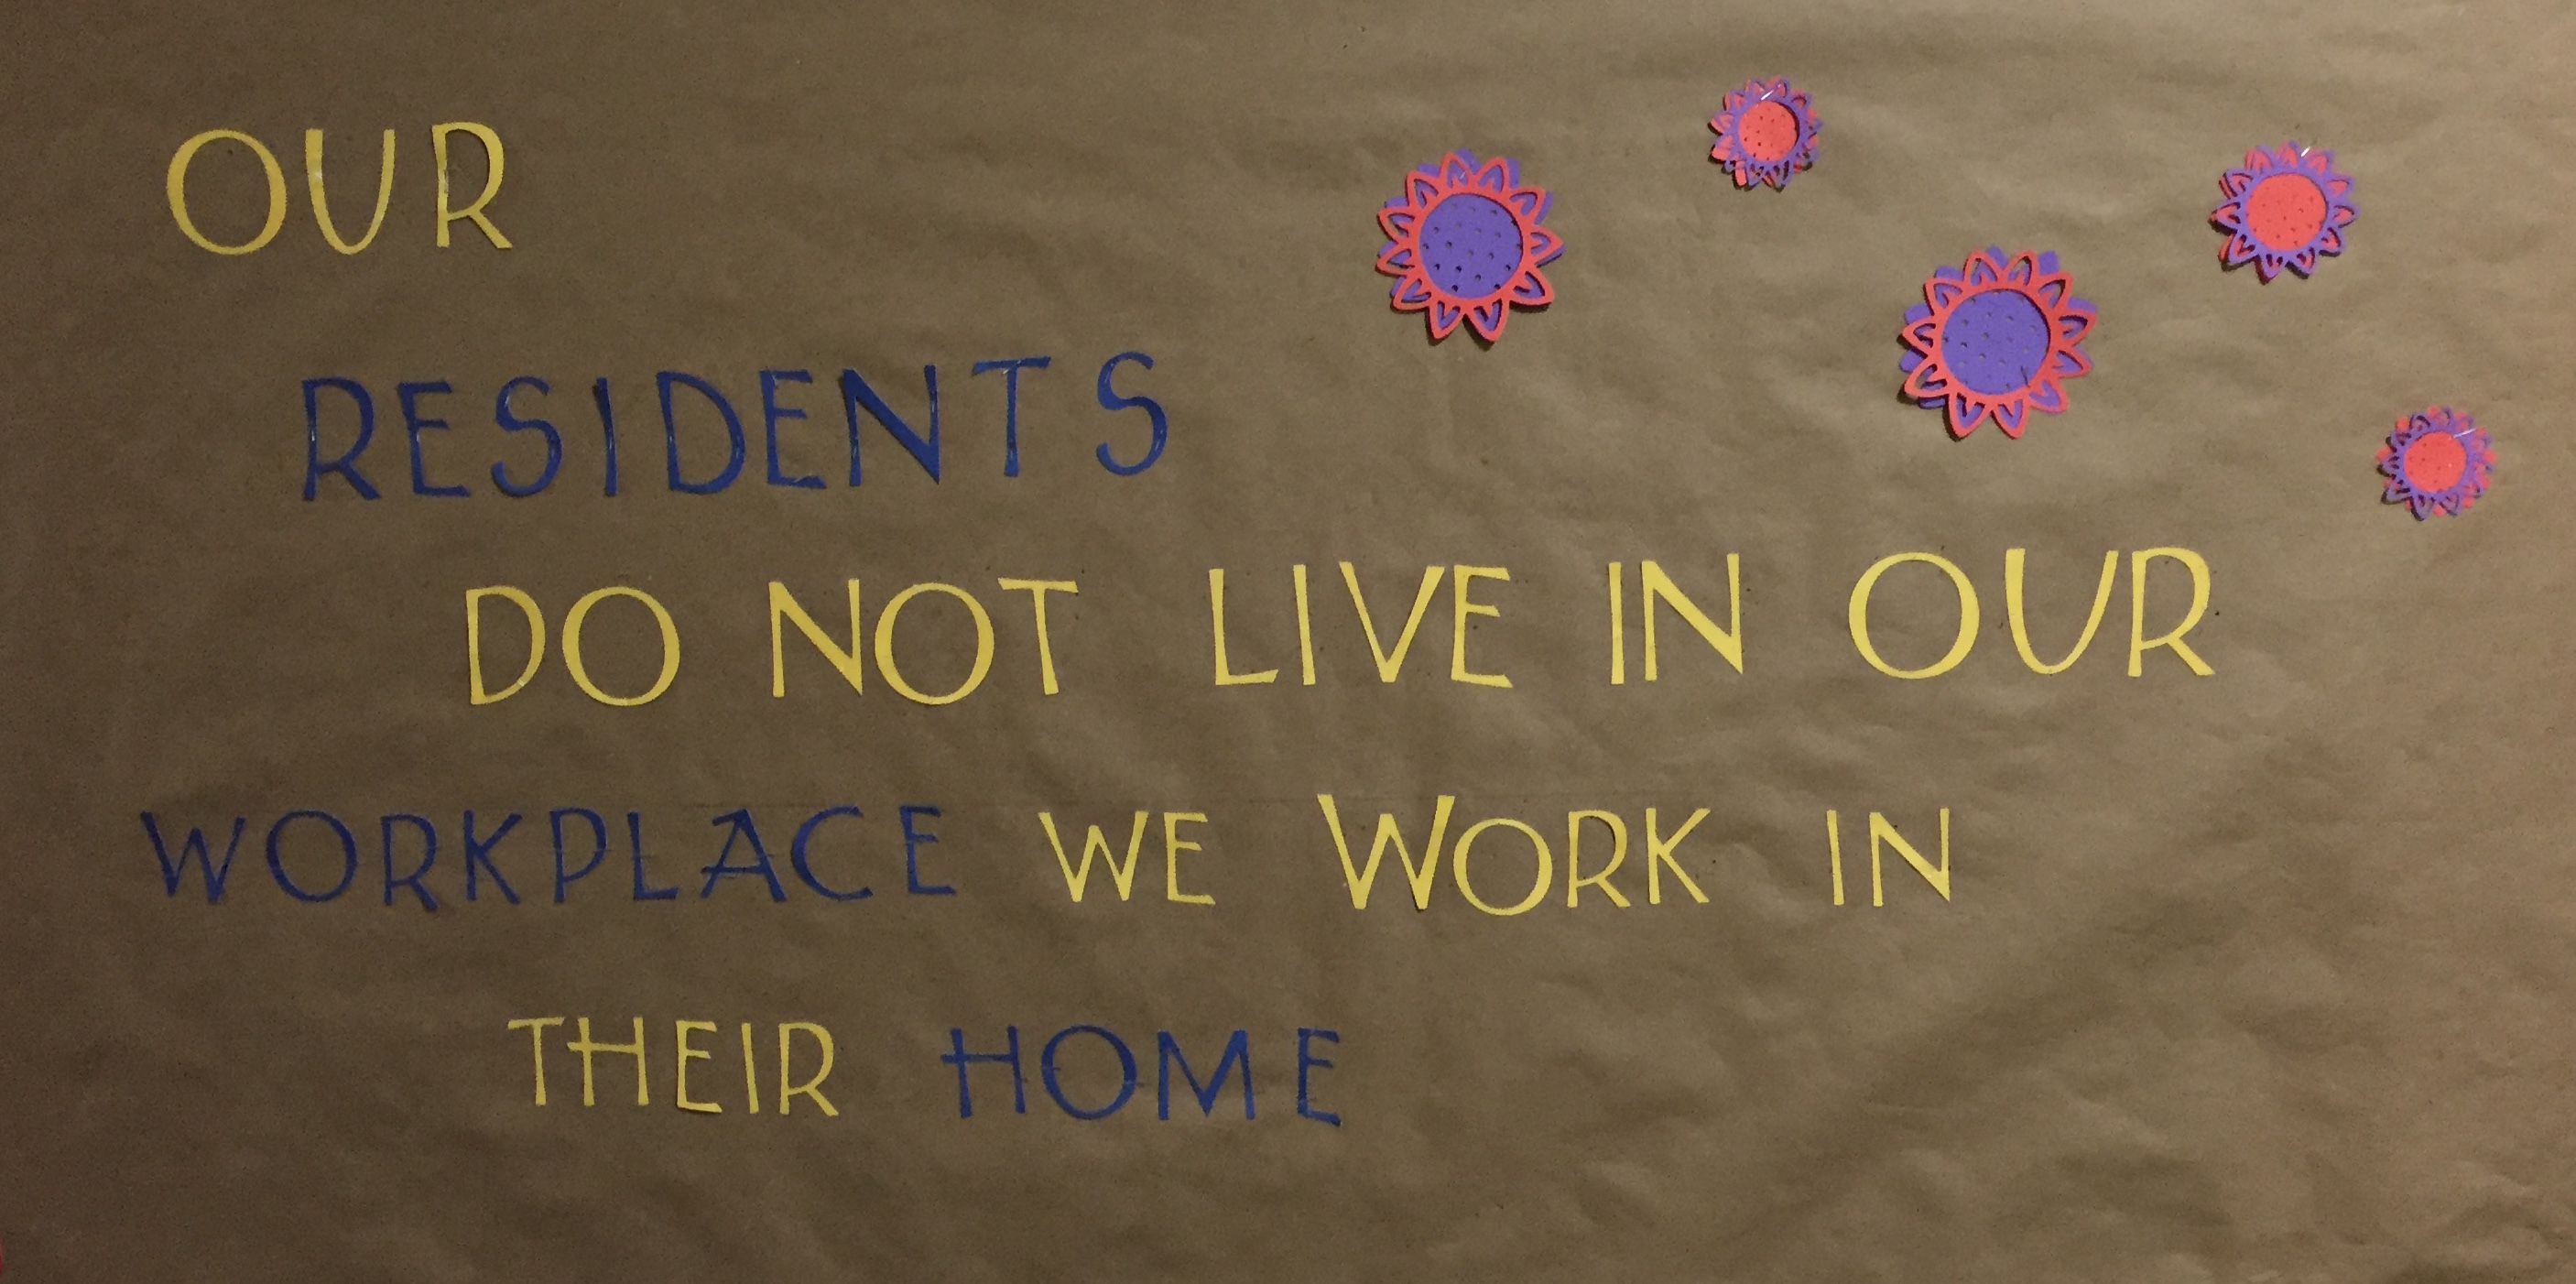 OUR
RESIDENTS
DO NOT LIVE IN OUR
WORKPLACE WE WORK IN
THEIR HOME